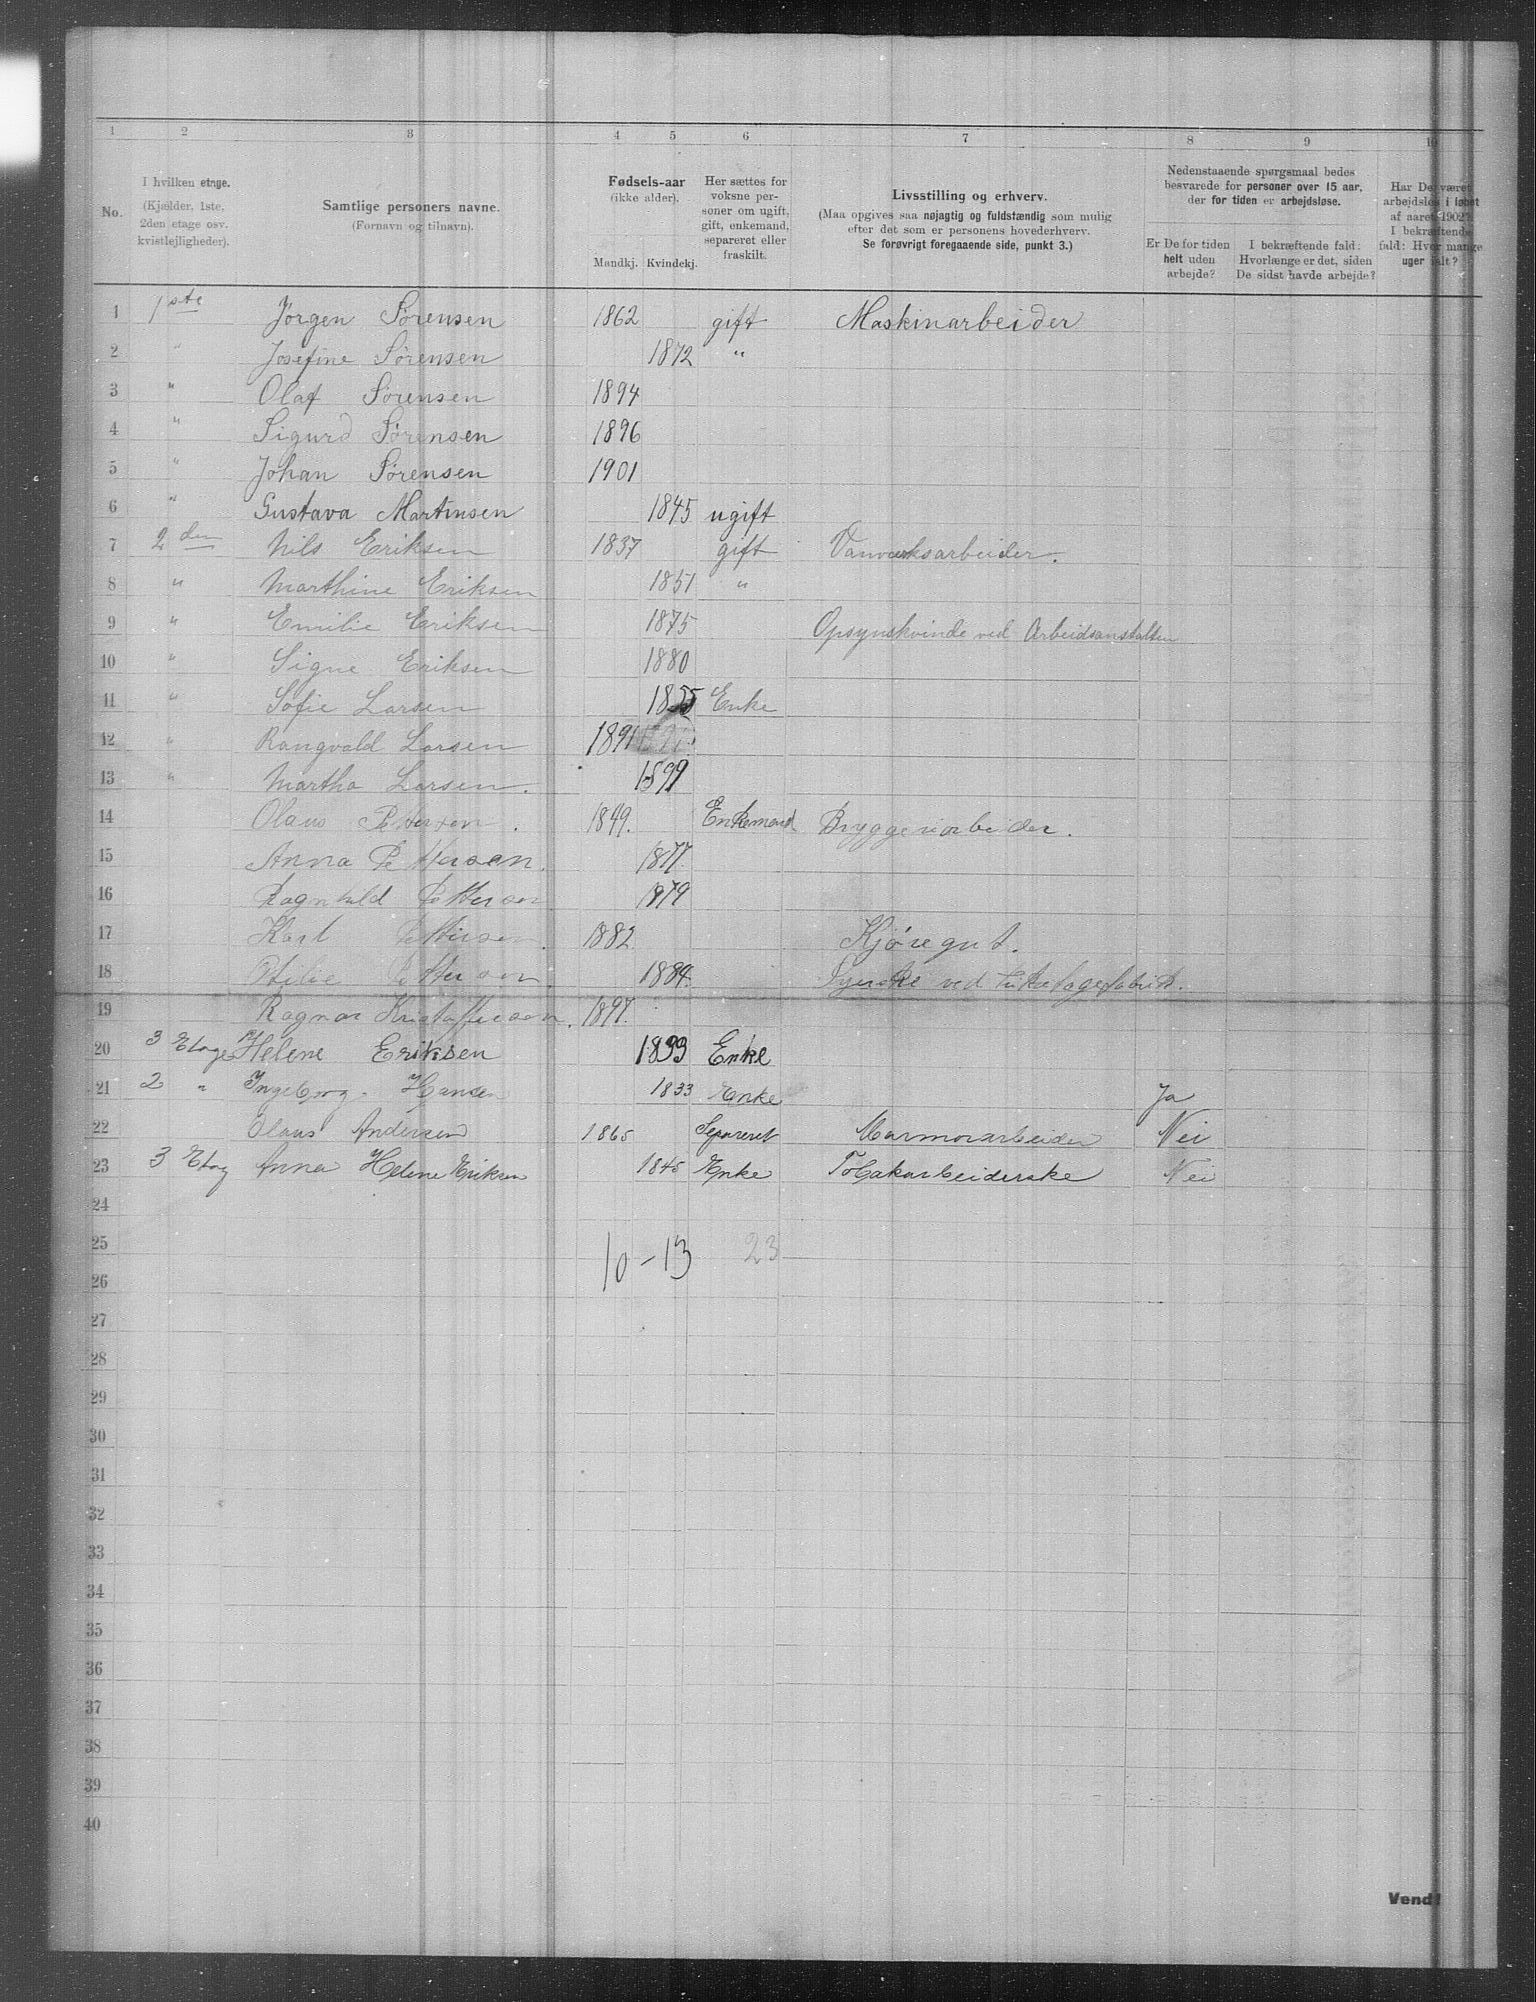 1 2 3 4 5 6 7 8 9 10
No.
I hvilken etage.
(Kjælder, 1ste,
2den etage osv.
kvistlejligheder).
Samtlige personers navne.
(Fornavn og tilnavn).
Fødsels-aar
(ikke alder).
Mandkj. Kvindekj.
Her sættes for
voksne per-
soner om ugift,
gift, enkemand,
separeret eller
fraskilt.
Livsstilling og erhverv.
(Maa opgives saa nøjagtig og fuldstændig som mulig
efter det som er personens hovederhverv.
Se forøvrigt foregaaende side, punkt 3.)
Nedenstaaende spørgsmaal bedes
besvarede for personer over 15 aar,
der for tiden er arbejdsløse.
Er De for tiden
helt uden
arbejde?
I bekræftende fald:
Hvorlænge er det, siden
De sidst havde arbejde?
Har De været
arbejdsløs i løbet
af aaret 1902?
I bekræftende
fald: Hvor mange
uger ialt?
1 1ste Jørgen Sørensen 1862 gift Maskinarbeider
2 " Josefine Sørensen 1872 "
3 " Olaf Sørensen 1894
4 " Sigurd Sørensen 1896
5 " Johan Sørensen 1901
6 " Gustava Martinsen 1845 ugift
7 2den Nils Eriksen 1837 gift Vanverksarbeider.
8 " Marthine Eriksen 1851 "
9 " Emilie Eriksen 1875 Opsynskvinde ved Arbeidsanstalten
10 " Signe Eriksen 1880
11 " Sofie Larsen 1855 Enke
12 " Rangvald Larsen 1891
13 " Martha Larsen. 1899
14 Olaus Pettersen. 1849. Enkemand Bryggeriarbeider.
15 Anna Pettersen. 1877.
16 Ragnhild Pettersen 1879
17 Karl Pettersen. 1882. Kjøregut.
18 Otilie Pettersen. 1884. Syerske ved
19 Ragnar Kristoffersen. 1897.
20 3 Etage Helene Eriksen 1833 Enke
21 2 " Ingeborg Hansen 1833 Enke Ja
22 Olaus Andersen 1865 Separeret Marmorarbeider Nei
23 3 Etag Anna Helene Eriksen 1845 Enke Tobakarbeiderske Nei
24
25 10-13 23
26
27
28
29
30
31
32
33
34
35
36
37
38
39
40
Vend!